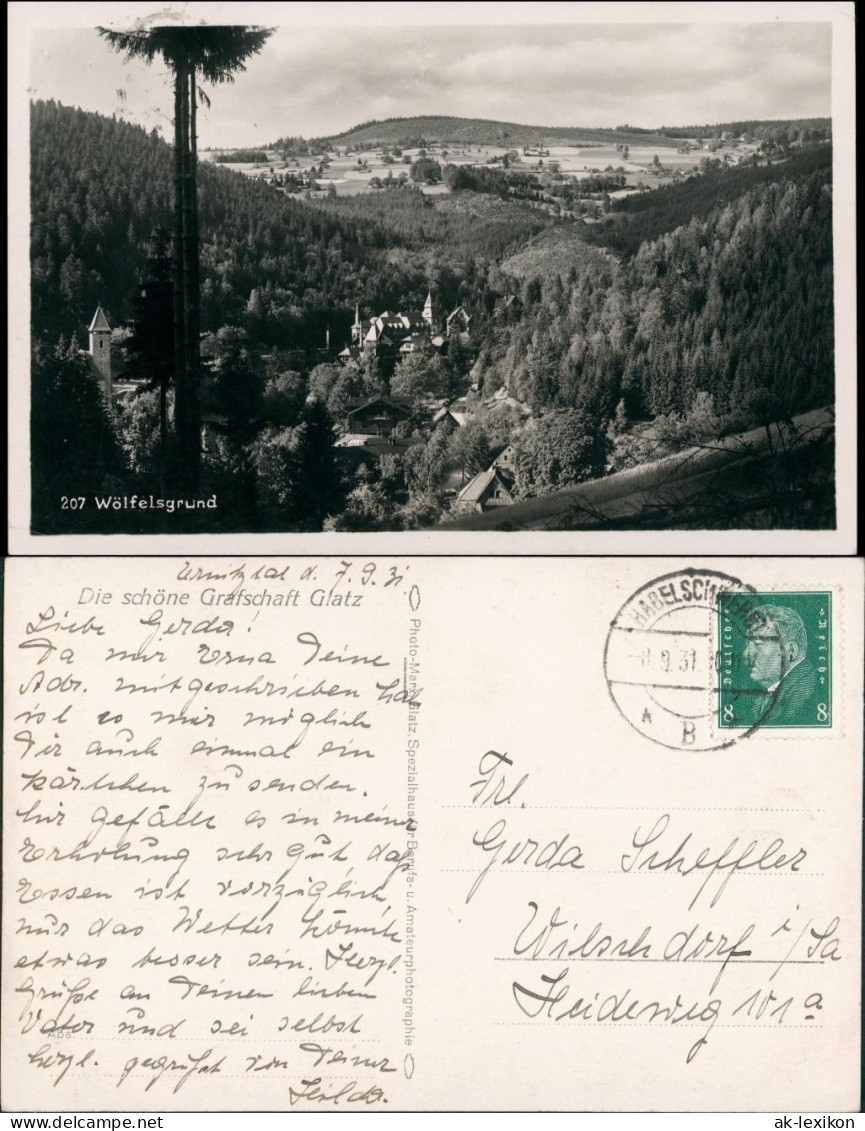 207 Wölfelsgrund
Urnitztal d. 7.9.31
Die schöne Grafschaft Glatz
Liebe Gerda!
Da mir Erna Deine
Adr. mitgeschrieben hat
ist es mir möglich
Dir auch einmal ein
Kärtchen zu senden.
Mir gefällt es in meiner
Erholung sehr gut, das
Essen ist vorzüglich,
nur das Wetter könnte
etwas besser sein. Herzl.
Grüße an Deinen lieben
Vater und sei selbst
Abs.
herzl. gegrüßt von Deiner
Hilda.
Photo-Marx, Glatz, Spezialhaus für Berufs- u. Amateurphotographie
HABELSCHWERDT
-8.9.31
* B *
Deutsches Reich
8 8
Frl.
Gerda Scheffler
Wilschdorf i/Sa
Heideweg 101a
ak-lexikon.de
ak-lexikon